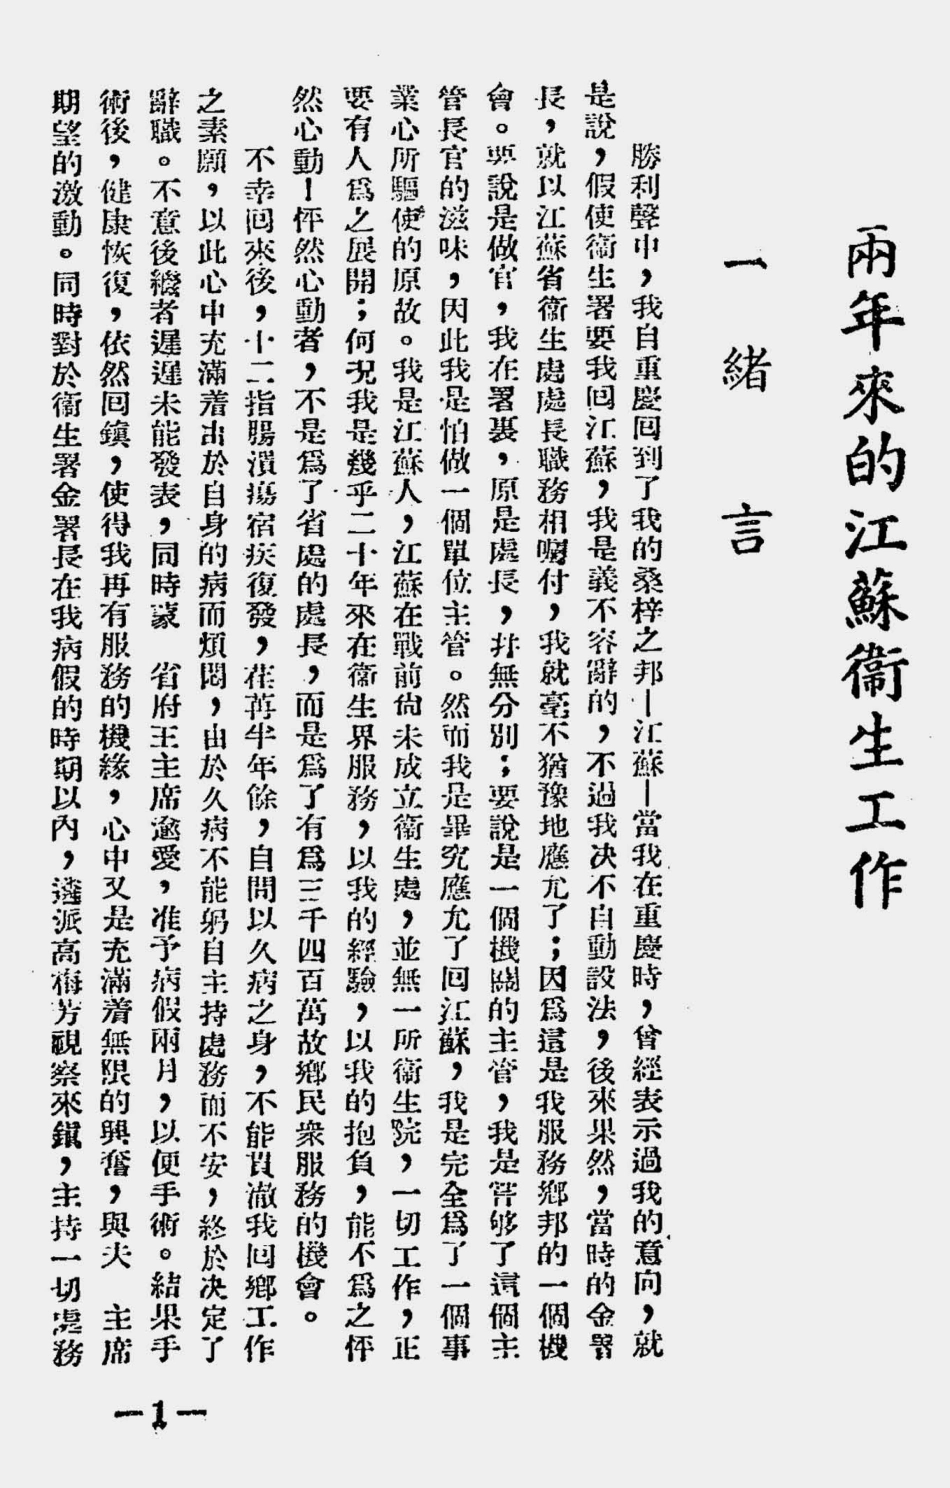 兩年來的江蘇衞生工作
一 緒 言
勝利聲中，我自重慶回到了我的桑梓之邦—江蘇—當我在重慶時，曾經表示過我的意向，就
是說，假使衞生署要我回江蘇，我是義不容辭的，不過我决不自動設法，後來果然，當時的金署
長，就以江蘇省衞生處處長職務相囑付，我就毫不猶豫地應允了；因爲這是我服務鄕邦的一個機
會。要說是做官，我在署裏，原是處長，幷無分別；要說是一個機關的主管，我是嘗够了這個主
管長官的滋味，因此我是怕做一個單位主管。然而我是畢究應允了回江蘇，我是完全爲了一個事
業心所驅使的原故。我是江蘇人，江蘇在戰前尙未成立衞生處，並無一所衞生院，一切工作，正
要有人爲之展開；何况我是幾乎二十年來在衞生界服務，以我的經驗，以我的抱負，能不爲之怦
然心動！怦然心動者，不是爲了省處的處長，而是爲了有爲三千四百萬故鄕民衆服務的機會。
不幸回來後，十二指腸潰瘍宿疾復發，荏苒半年餘，自問以久病之身，不能貫澈我回鄕工作
之素願，以此心中充滿着出於自身的病而煩悶，由於久病不能躬自主持處務而不安，終於决定了
辭職。不意後繼者遲遲未能發表，同時蒙　省府王主席逾愛，准予病假兩月，以便手術。結果手
術後，健康恢復，依然回鎮，使得我再有服務的機緣，心中又是充滿着無限的興奮，與夫　主席
期望的激動。同時對於衞生署金署長在我病假的時期以內，遴派高梅芳視察來鎭，主持一切處務
—1—